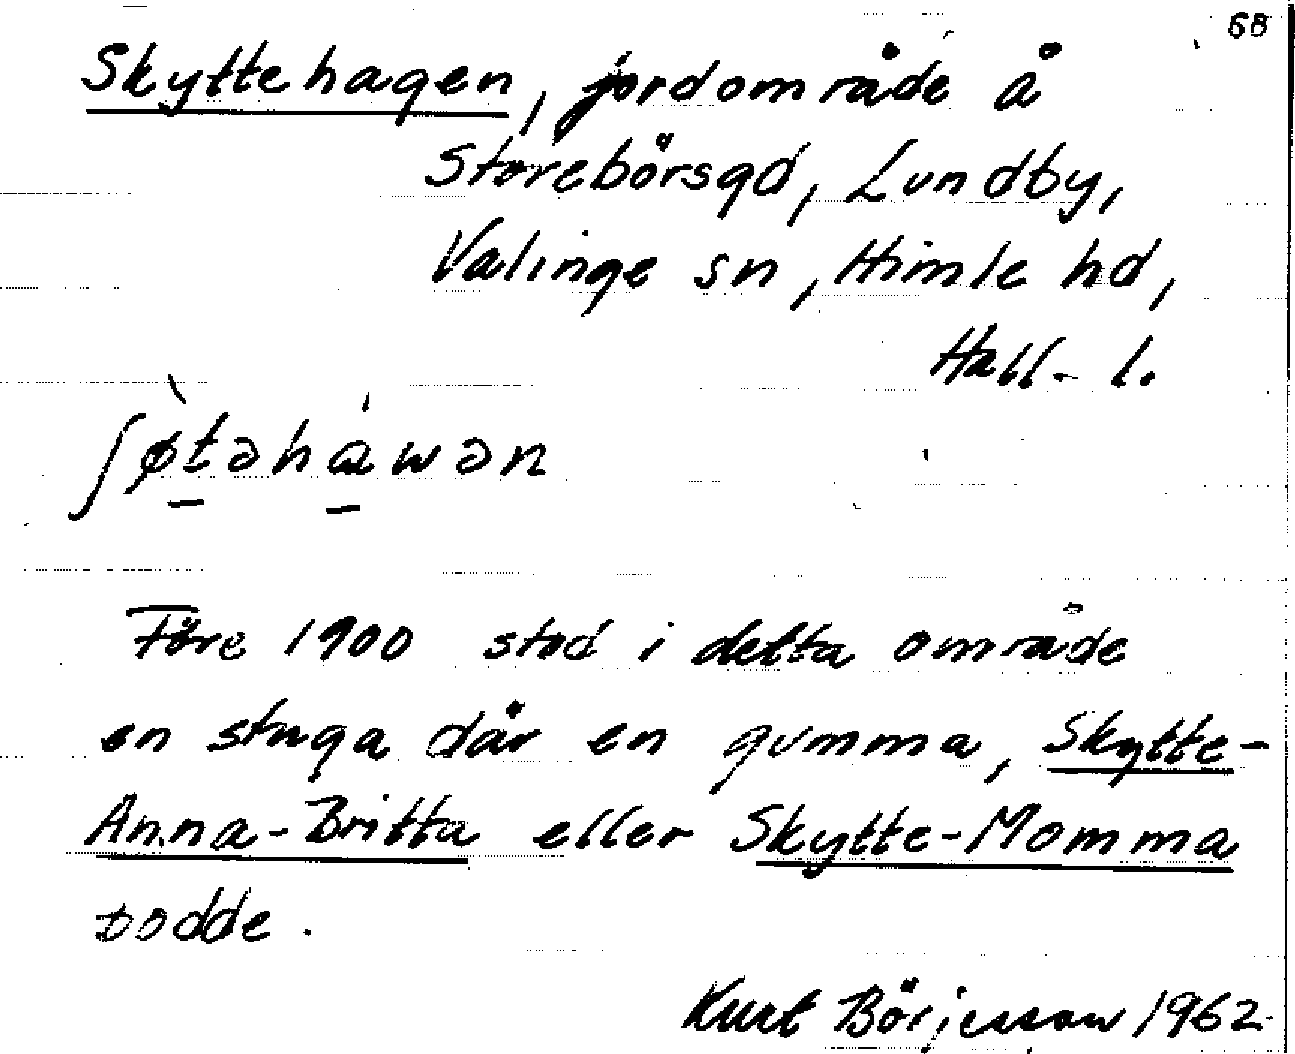 68
Skyttehagen, jordområde å
Storebörsgd, Lundby,
Valinge sn, Himle hd,
Hall. l.
ʃø̀təhàwən
Före 1900 stod i detta område
en stuga där en gumma, Skytte-
Anna-Britta eller Skytte-Momma
bodde.
Kurt Börjesson 1962